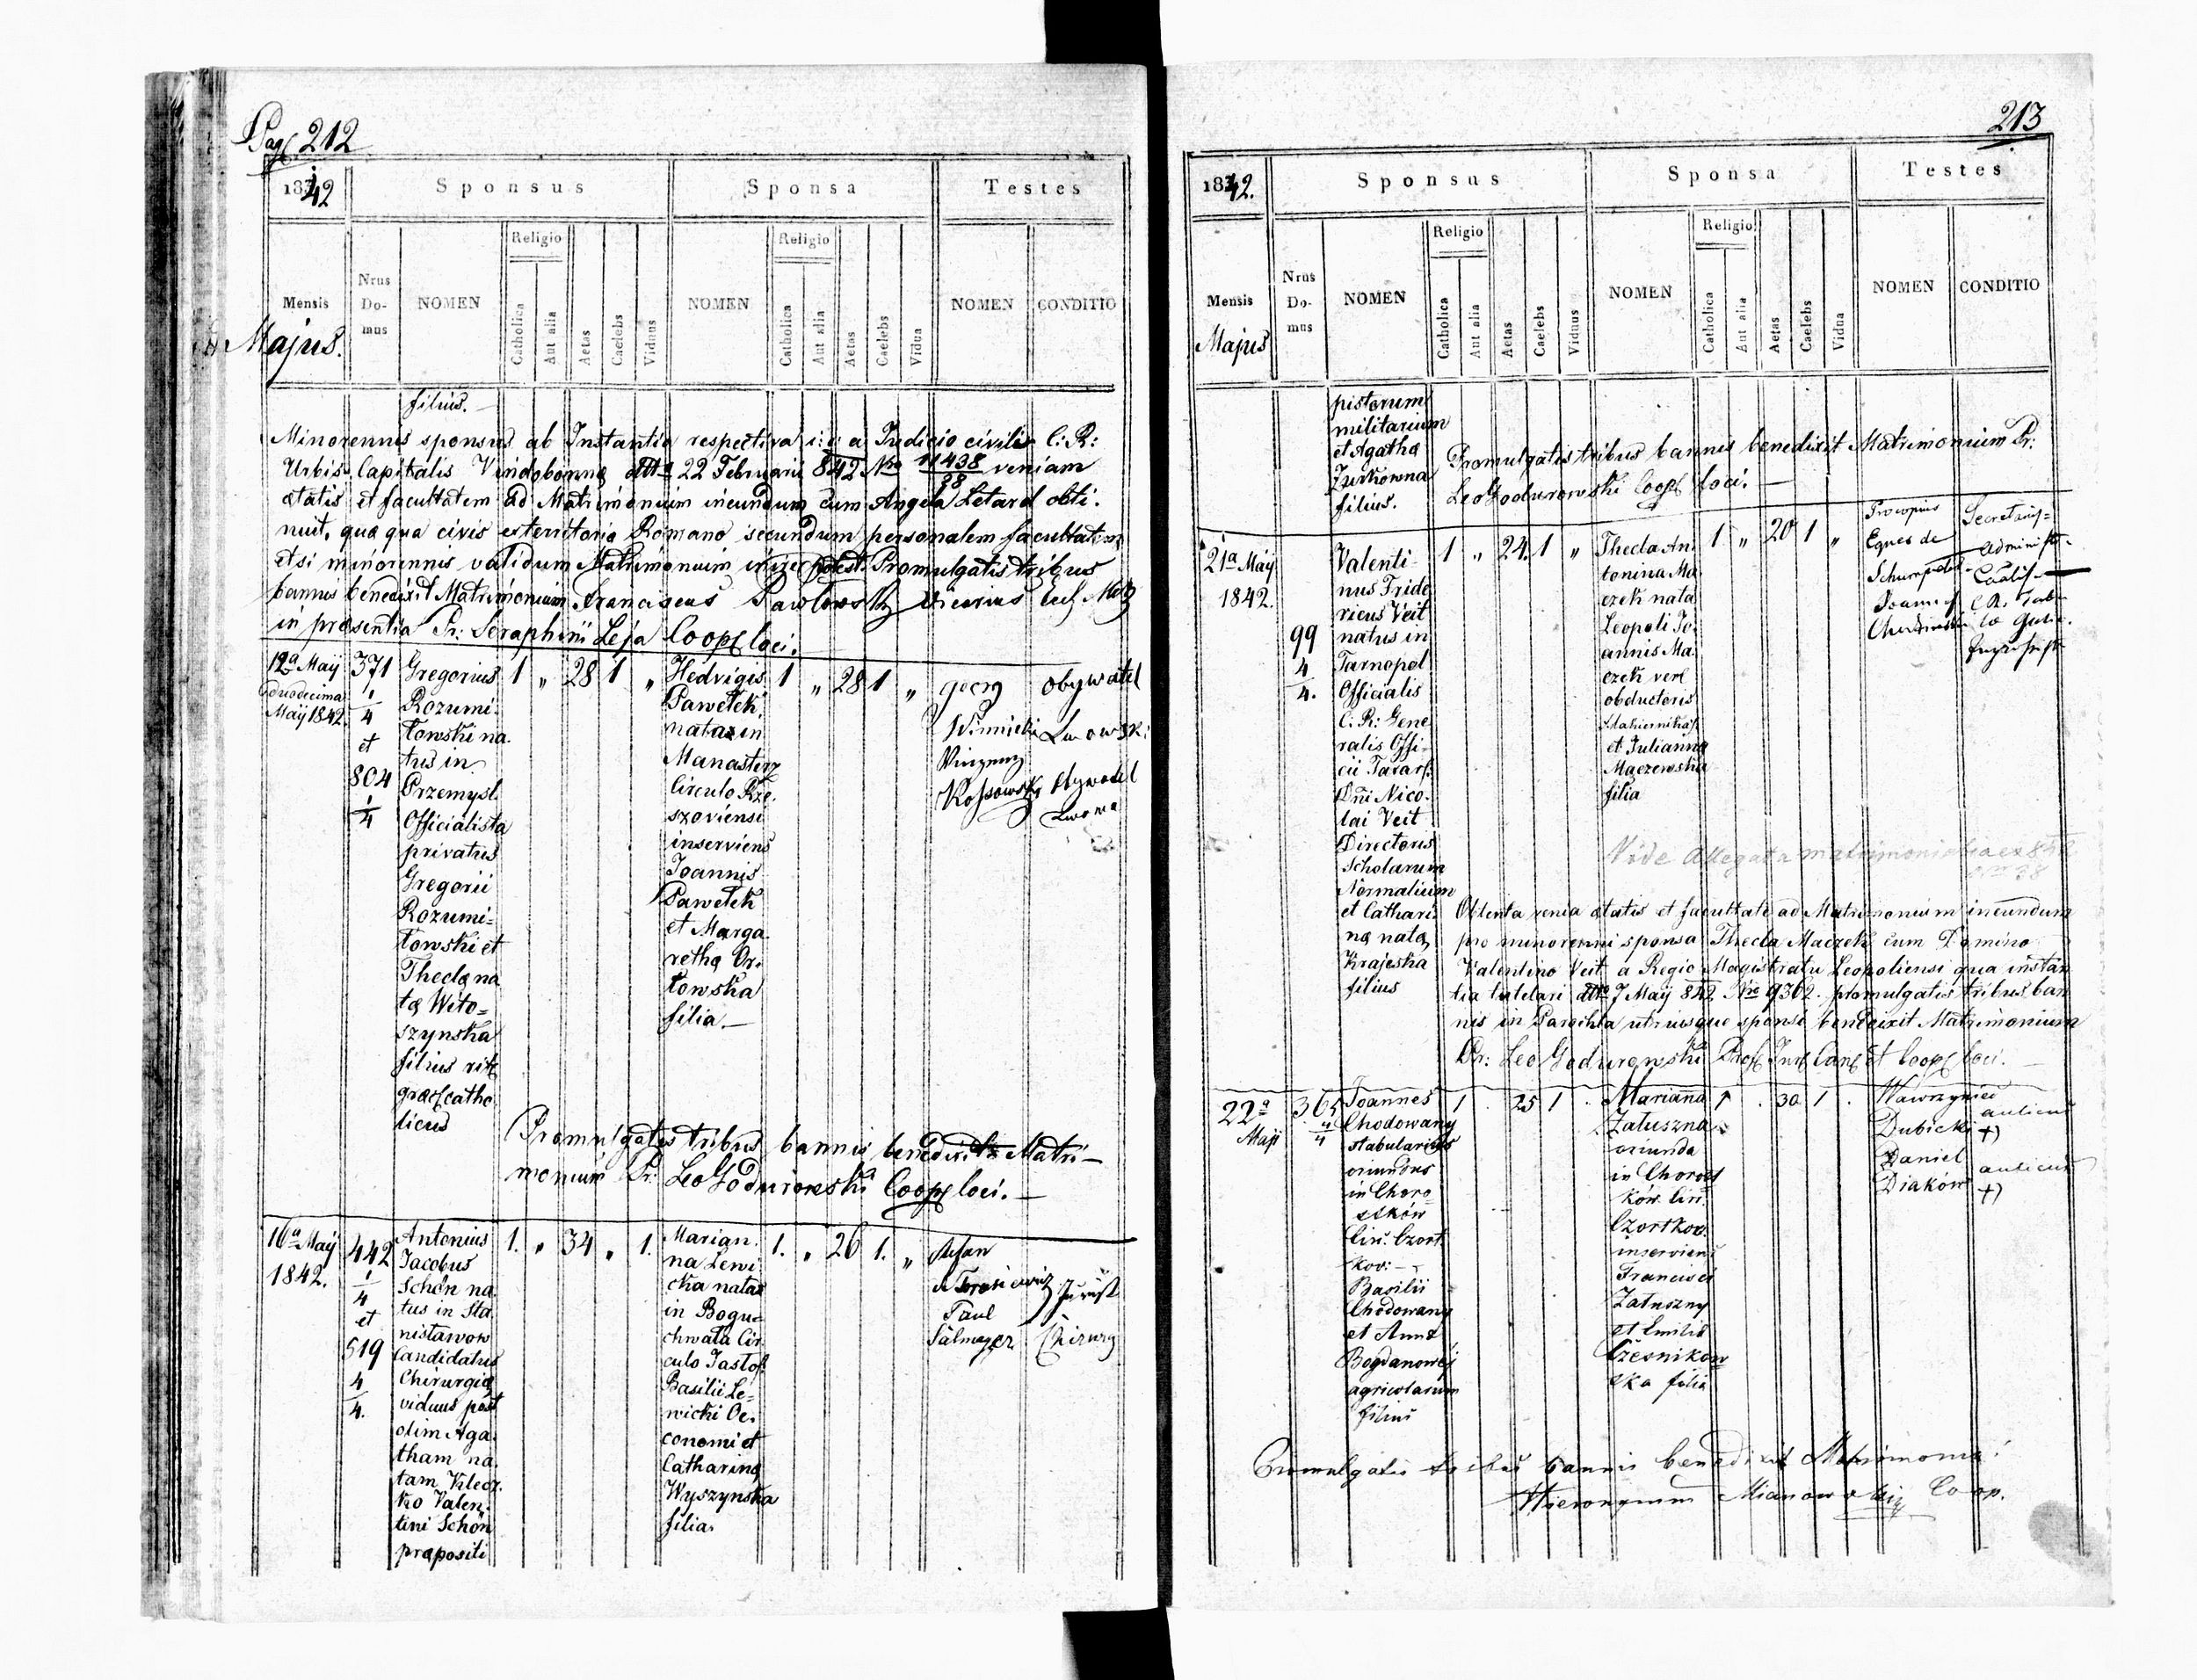 Pag 212
1842
Sponsus
Sponsa
Testes
Mensis
Majus.
Nrus Do-mus
NOMEN
Religio
Catholica
Aut alia
Aetas
Caelebs
Viduus
NOMEN
Religio
Catholica
Aut alia
Aetas
Caelebs
Vidua
NOMEN
CONDITIO
filius. —
Minorennis sponsus ab Instantia respectiva i: e: a Judicio civili C: R:
Urbis Capitalis Vindobonna dtto 22 Februarii 842 Nro 11438/38 veniam
ætatis et facultatem ad Matrimonium ineundum cum Angela Letard obti-
nuit, qua qua civis e territorio Romano secundum personalem facultatem
etsi minorennis validum Matrimonium inire potest. Promulgatis tribus
bannis benedixit Matrimonium Franciscus Pawlowski Vicarius
in præsentia Pr: Seraphini Leja Coop loci.
12a Maij
duodecima
Maij 1842.
371
1/4
et
804
1/4
Gregorius
Rozumi-
łowski na-
tus in
Przemysl
Officialista
privatus
Gregorii
Rozumi=
łowski et
Theclæ na
tæ Wito=
szynska
filius rit
græc catho
licus
1 „ 28 1 „
Hedvigis
Pawełek,
nata in
Manasterz
Circulo Rze-
szoviensi
inserviens
Joannis
Pawełek
et Marga
rethæ Or-
łowska
filia. —
1 „ 28 1 „
Georg
Winnicki
Vinzenz
Kossowski
obywatel
Lwowski
Obywatel
Lwowa
Promulgatis tribus bannis benedixit Matri-
monium Pr: Leo Godurowski Coop loci. —
16a Maij
1842.
442
1/4
et
519
4/4.
Antonius
Jacobus
Schön na
tus in Sta
nisławow
Candidatus
Chirurgiæ
viduus post
olim Aga
tham na
tam Klecz
ko Valen
tini Schön
præpositi
1. „ 34 „ 1.
Marian
na Lewi
cka nata
in Bogu=
chwała Cir
culo Jasłof
Basilii Le-
wicki Oe-
conomi et
Catharinæ
Wyszynska
filia.
1. „ 26 1. „
Paul
Salmayer
Jurist
Chirurg
213
1842.
Sponsus
Sponsa
Testes
Mensis
Majus
Nrus Do-mus
NOMEN
Religio
Catholica
Aut alia
Aetas
Caelebs
Viduus
NOMEN
Religio
Catholica
Aut alia
Aetas
Caelebs
Vidua
NOMEN
CONDITIO
pistorum
militarium
et Agatha
Zurkowna
filius.
Promulgatis tribus bannis benedixit Matrimonium Pr:
Leo Godurowski Coop loci. —
21a Maij
1842.
99
4/4.
Valenti-
nus Fride
ricus Veit
natus in
Tarnopol
Officialis
C: R: Gene
ralis Offi-
cii Taxar:
Dñi Nico-
lai Veit
Directoris
Scholarum
Normalium
et Cathari
næ nata
Krajeska
filius
1 „ 24 1 „
Thecla An
tonina Ma
czek nata
Leopoli Jo-
annis Ma
czek
obductoris
et Julianna
Maczewska
filia
1 „ 20 1 „
Procopius
Eques de
Joannes
Secretary=
Vide Allegata matrimonialia ex 842
Nro 98
Obtenta venia ætatis et facultate ad Matrimonium ineundum
pro minorenni sponsa Thecla Maczek cum Domino
Valentino Veit, a Regio Magistratu Leopoliensi qua instan
tia tutelari dtto 7 Maij 842 Nro 9362. promulgatis tribus ban
nis in Parochia utriusque sponsi benedixit Matrimonium
Pr: Leo Godurowski Prof Jur Can et Coop loci. —
22a
Maji
365
4/4
Joannes
Chodowany
stabularius
oriundus
in Choro
stków
Cir. Czort
kov: —
Basilii
Chodowany
et Anna
Bogdanowej
agricolarum
filius
1 . 25 1 .
Marianna
Załuszna
oriunda
in Chorost
ków Cir.
Czortkov.
inserviens
Francisci
Załuszny
et Emilia
Czesnikow
ska filia
1 . 30 1 .
Wawrzyniec
Dubicki
Daniel
Diaków
aulicus
+)
aulicus
+)
Promulgatis tribus bannis benedixit Matrimoniu:
Hieronymus Mianowski Coop.